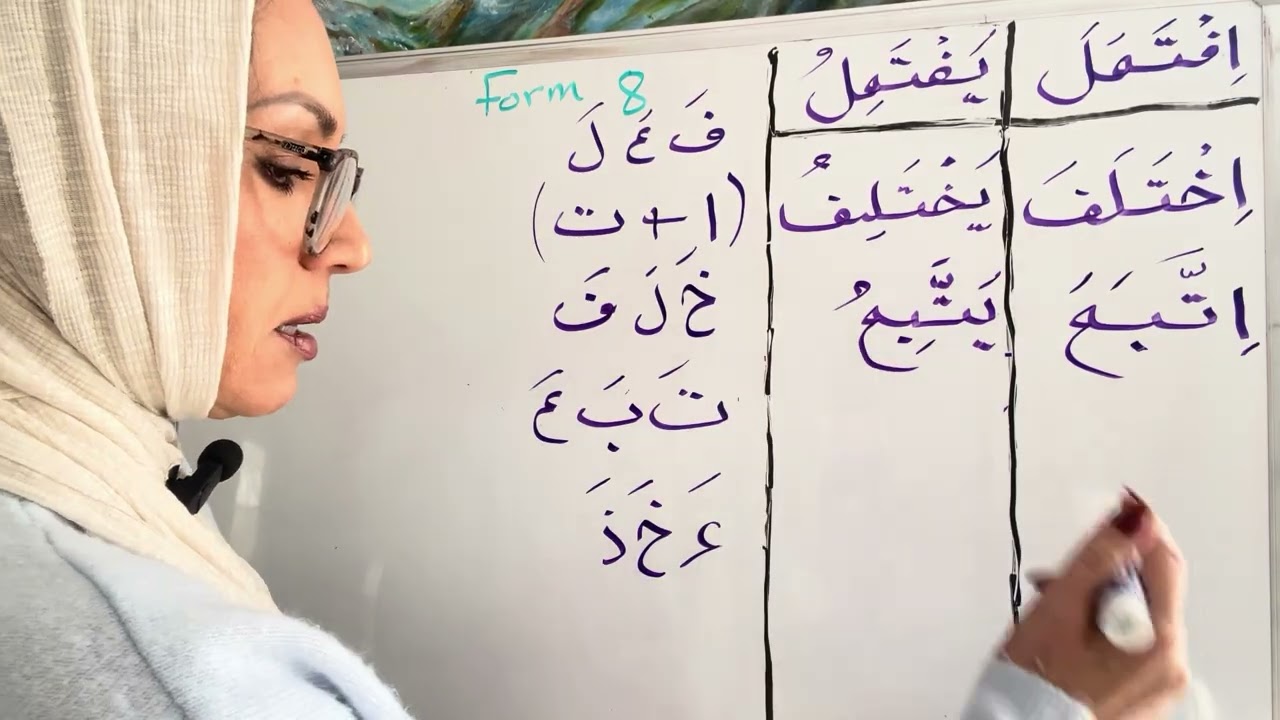 Form 8
اِفْتَعَلَ يَفْتَعِلُ
فَ عَ لَ
اِخْتَلَفَ يَخْتَلِفُ
(ا + ت)
اِتَّبَعَ يَتَّبِعُ
خَ لَ فَ
تَ بَ عَ
ءَ خَ ذَ